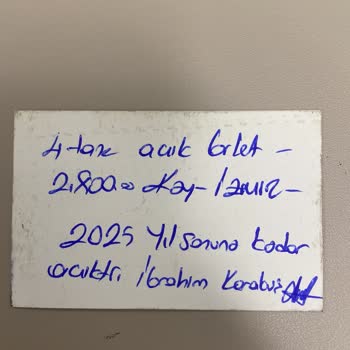 4 tane açık bilet -
2.800.00 Kay - İzmir -
2025 Yıl Sonuna kadar
açıktır. İbrahim Karakuş